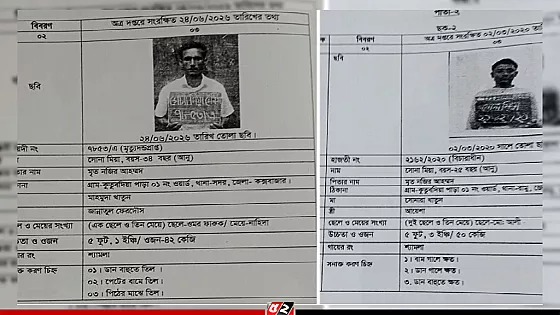 বিবরণ
অত্র দপ্তরে সংরক্ষিত ২৪/০৬/২০২৬ তারিখের তথ্য
০২
০৩
ছবি
২৪/০৬/২০২৬ তারিখ তোলা ছবি।
নং
৭৮৫৩/এ (মৃত্যুদন্ডপ্রাপ্ত)
সোনা মিয়া, বয়স-৩৪ বছর (আনু)
নাম
মৃত নজির আহম্মদ
গ্রাম-কুতুবদিয়া পাড়া ০১ নং ওয়ার্ড, থানা-সদর, জেলা- কক্সবাজার।
মাহমুদা খাতুন
জান্নাতুল ফেরদৌস
ও মেয়ের সংখ্যা
(এক ছেলে ও তিন মেয়ে) ছেলে-ওমর ফারুক/ মেয়ে-নাহিদা
ও ওজন
৫ ফুট, ১ ইঞ্চি/ ওজন-৪২ কেজি
রং
শ্যামলা
করণ চিহ্ন
০১। ডান বাহুতে তিল।
০২। পেটের বামে তিল।
০৩। পিঠের মাঝে তিল।
পাতা-২
ছক-২
বিবরণ
অত্র দপ্তরে সংরক্ষিত ০২/০৩/২০২০
০২
০৩
ছবি
০২/০৩/২০২০ সালে তোলা
হাজতী নং
২১৬২/২০২০ (বিচারাধীন)
নাম
সোনা মিয়া, বয়স-২৫ বছর (আনু)
পিতার নাম
মৃত নজির আহম্মদ
ঠিকানা
গ্রাম-কুতুবদিয়া পাড়া ০১ নং ওয়ার্ড, থানা-রামু,
মা
সোনরা খাতুন
স্ত্রী
আয়েশা
ছেলে ও মেয়ের সংখ্যা
(দুই ছেলে ও তিন মেয়ে) ছেলে-মো: আলী
উচ্চতা ও ওজন
৫ ফুট, ৩ ইঞ্চি/ ৫০ কেজি
গায়ের রং
শ্যামলা
সনাক্ত করণ চিহ্ন
১। বাম গালে ক্ষত।
২। ডান গালে ক্ষত।
৩. ডান বাহুতে ক্ষত।